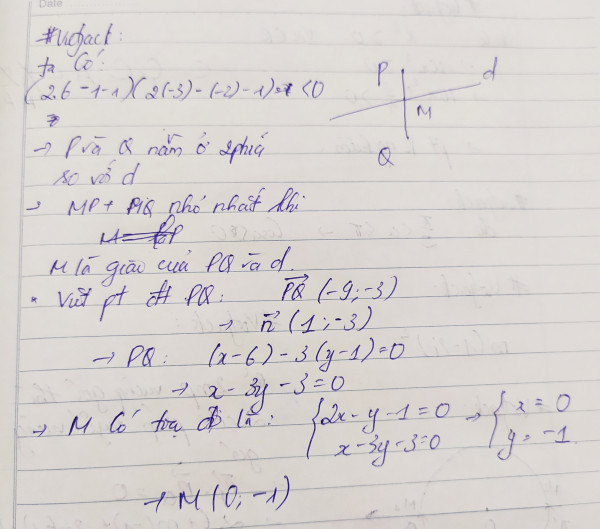 Date
#Vietjack:
ta có:
(2.6-1-1)(2(-3)-(-2)-1) <0
→ P và Q nằm ở 2 phía
so với d
→ MP + MQ nhỏ nhất khi
M là giao của PQ và d.
* Viết pt đt PQ: PQ (-9;-3)
→ n (1;-3)
→ PQ: (x-6)-3(y-1)=0
→ x-3y-3=0
→ M có tọa độ là: {2x-y-1=0 → {x=0
x-3y-3=0 y=-1
→ M(0;-1)
P
d
M
Q